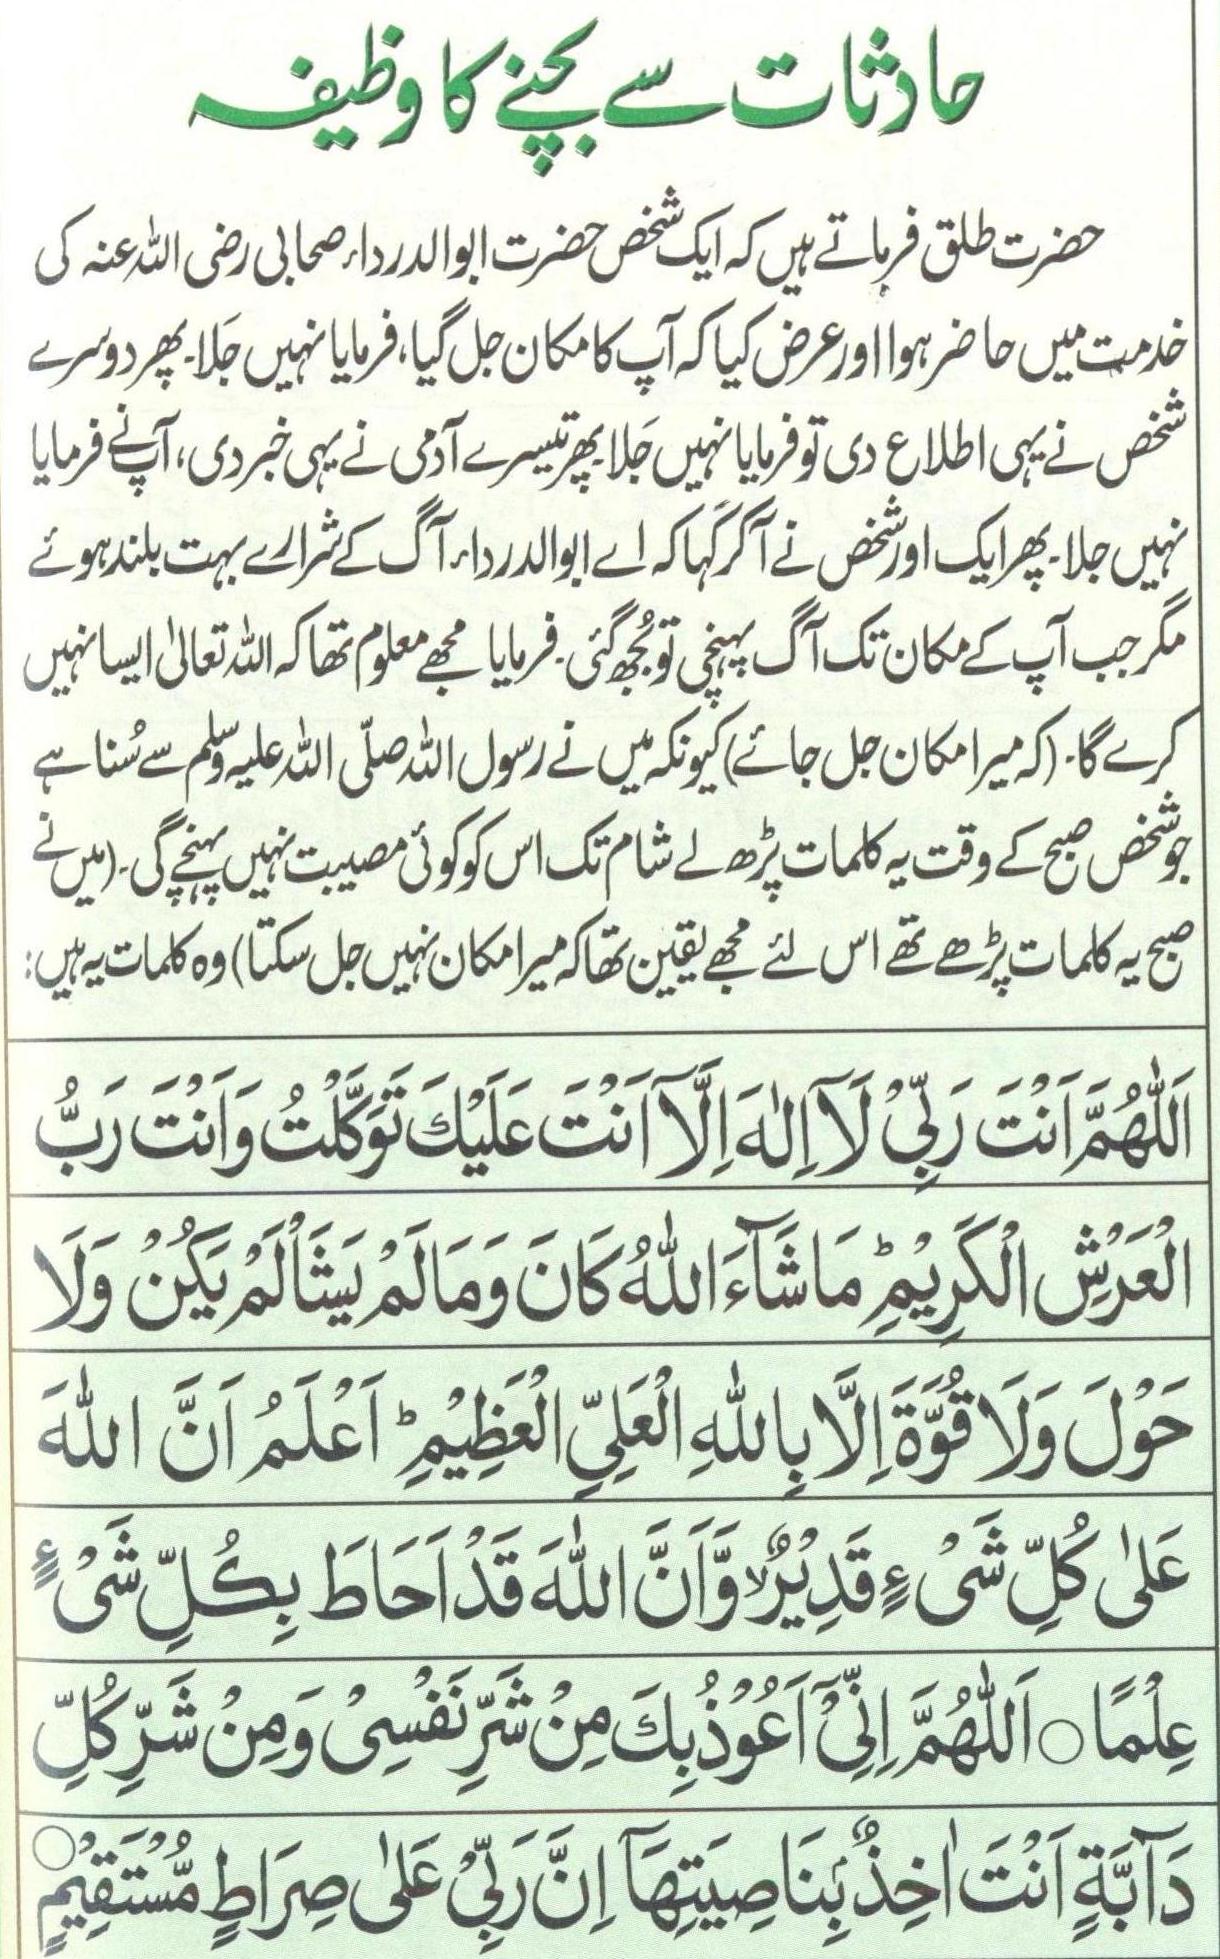 حادثات سے بچنے کا وظیفہ
حضرت طلق فرماتے ہیں کہ ایک شخص حضرت ابوالدرداء صحابی رضی اللہ عنہ کی
خدمت میں حاضر ہوا اور عرض کیا کہ آپ کا مکان جل گیا، فرمایا نہیں جَلا۔ پھر دوسرے
شخص نے یہی اطلاع دی تو فرمایا نہیں جَلا۔ پھر تیسرے آدمی نے یہی خبر دی، آپ نے فرمایا
نہیں جلا۔ پھر ایک اور شخص نے آکر کہا کہ اے ابوالدرداء آگ کے شرارے بہت بلند ہوئے
مگر جب آپ کے مکان تک آگ پہنچی تو بُجھ گئی۔ فرمایا مجھے معلوم تھا کہ اللہ تعالیٰ ایسا نہیں
کرے گا۔ (کہ میرا مکان جل جائے) کیونکہ میں نے رسول اللہ صلّی اللہ علیہ وسلم سے سُنا ہے
جو شخص صبح کے وقت یہ کلمات پڑھ لے شام تک اس کو کوئی مصیبت نہیں پہنچے گی۔ (میں نے
صبح یہ کلمات پڑھے تھے اس لئے مجھے یقین تھا کہ میرا مکان نہیں جل سکتا) وہ کلمات یہ ہیں:
اَللّٰهُمَّ اَنْتَ رَبِّیْ لَآ اِلٰهَ اِلَّآ اَنْتَ عَلَیْكَ تَوَکَّلْتُ وَاَنْتَ رَبُّ
الْعَرْشِ الْکَرِیْمِ ؕ مَا شَآءَ اللّٰهُ کَانَ وَمَا لَمْ یَشَاْ لَمْ یَکُنْ وَلَا
حَوْلَ وَلَا قُوَّةَ اِلَّا بِاللّٰهِ الْعَلِیِّ الْعَظِیْمِ ؕ اَعْلَمُ اَنَّ اللّٰهَ
عَلٰی کُلِّ شَیْءٍ قَدِیْرٌ ۙ وَّاَنَّ اللّٰهَ قَدْ اَحَاطَ بِکُلِّ شَیْءٍ
عِلْمًا ○ اَللّٰهُمَّ اِنِّیْٓ اَعُوْذُ بِكَ مِنْ شَرِّ نَفْسِیْ وَمِنْ شَرِّ کُلِّ
دَآبَّةٍ اَنْتَ اٰخِذٌۢ بِنَاصِیَتِهَآ اِنَّ رَبِّیْ عَلٰی صِرَاطٍ مُّسْتَقِیْمٍ ○